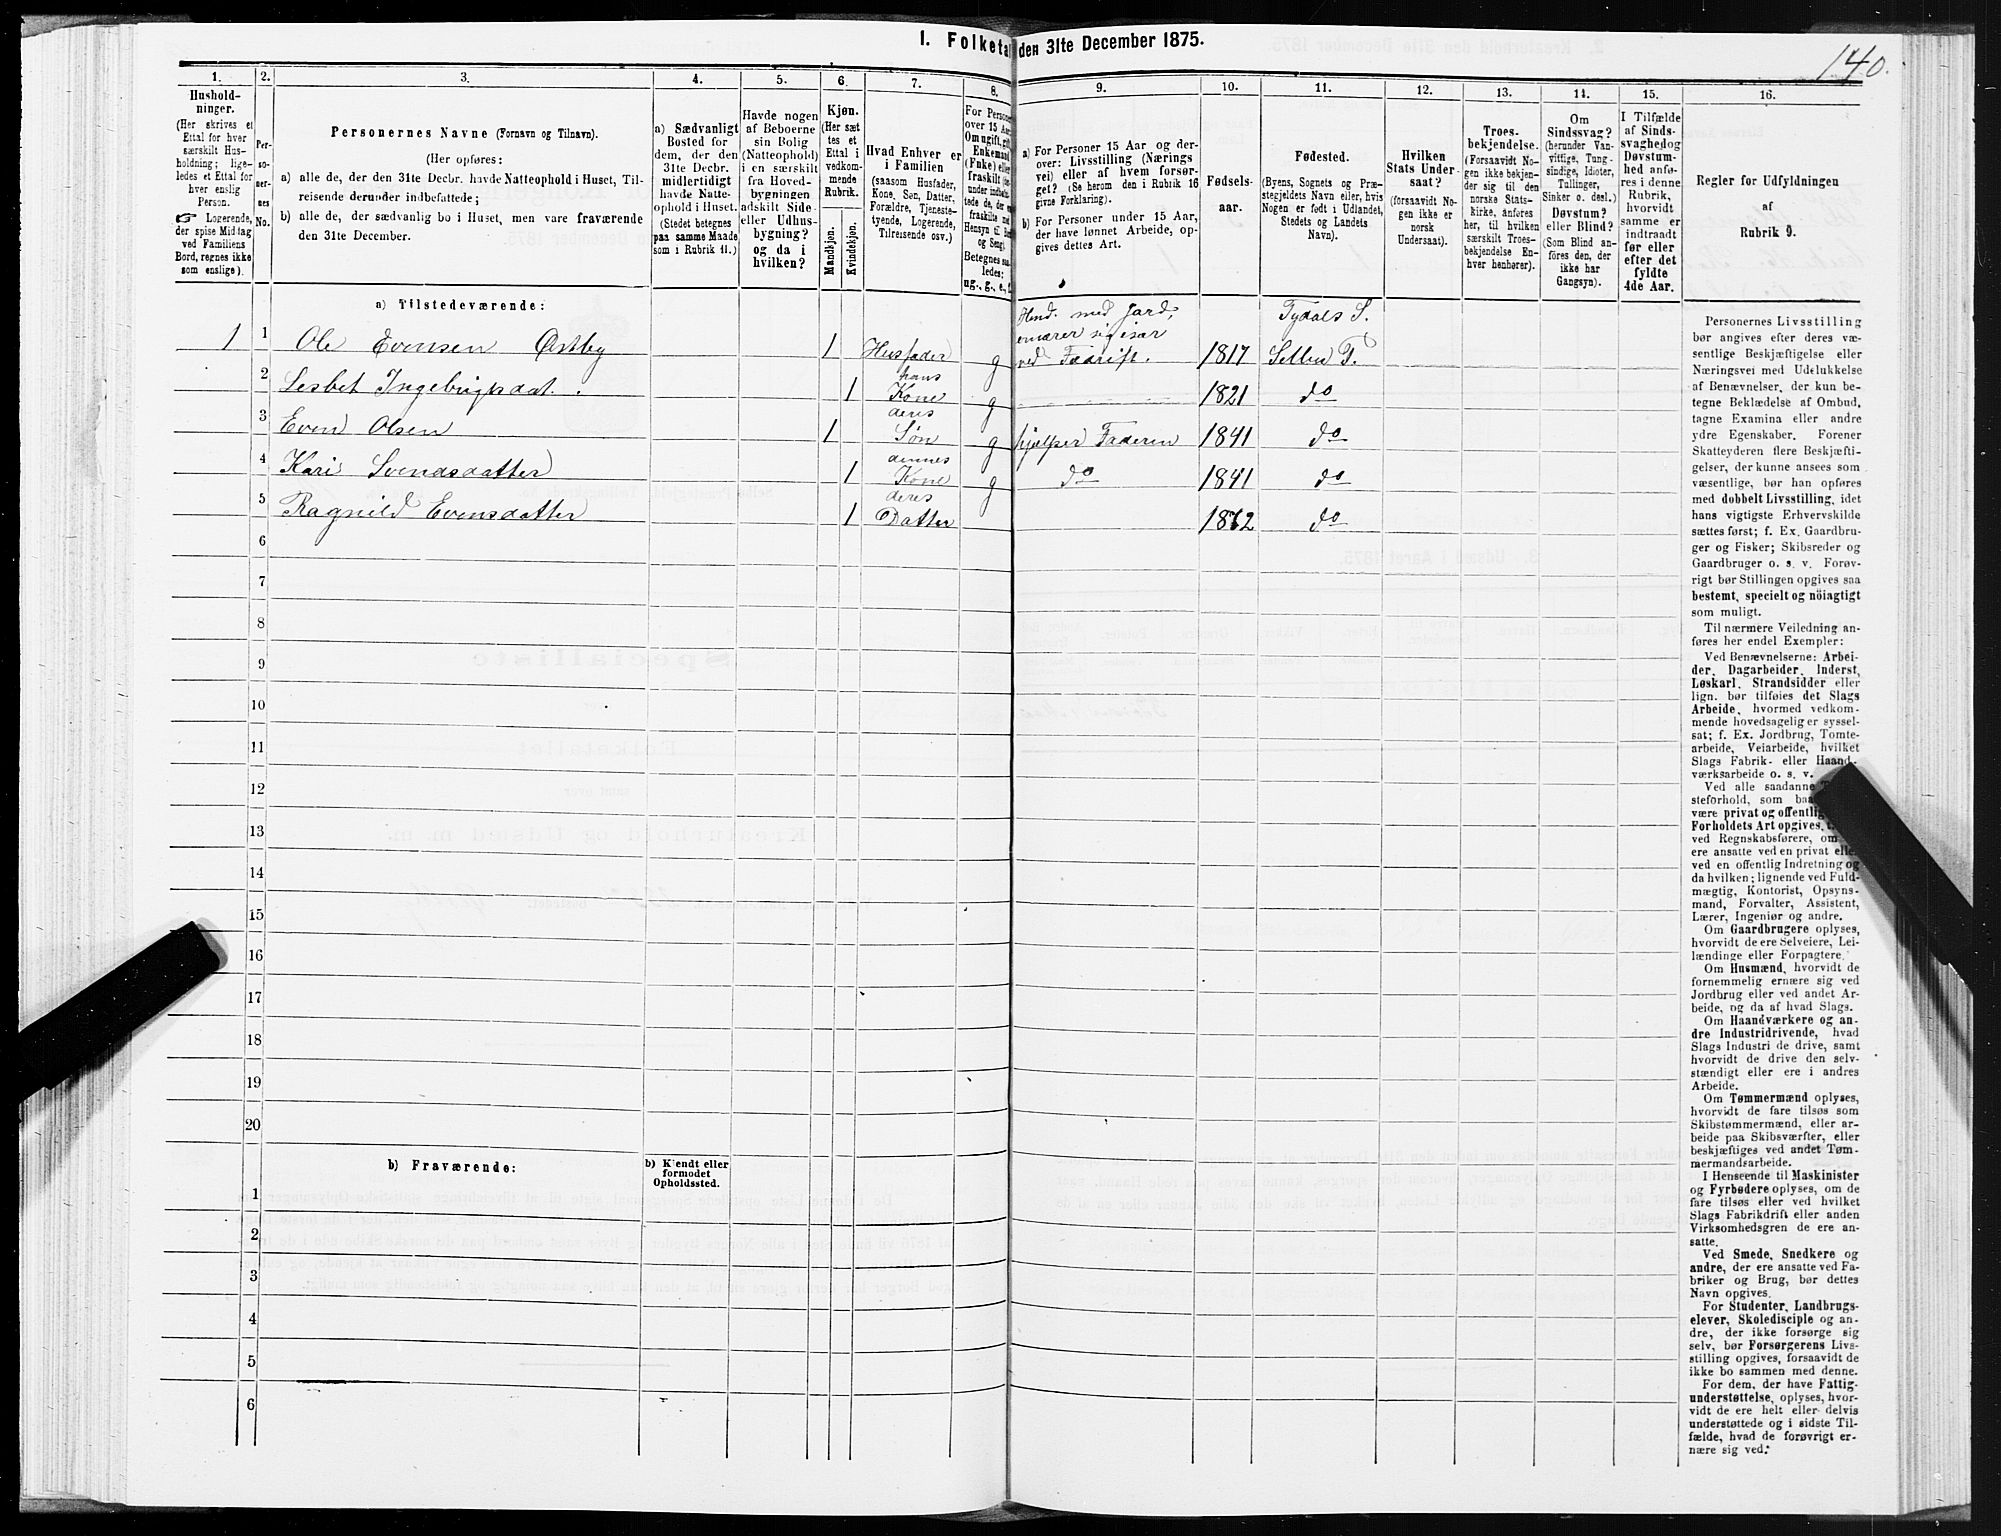 1. Folketa den 31te December 1875.
140.
1.
2.
3.
4.
5.
6.
7.
8.
9.
10.
11.
12.
13.
14.
15.
16.
Hushold-
ninger.
(Her skrives et
Ettal for hver
særskilt Hus-
holdning; lige-
ledes et Ettal for
hver enslig
Person.
☞ Logerende,
der spise Middag
ved Familiens
Bord, regnes ikke
som enslige).
Per-
so-
ner-
nes
No.
Personernes Navne (Fornavn og Tilnavn).
(Her opføres:
a) alle de, der den 31te Decbr. havde Natteophold i Huset, Til-
reisende derunder indbefattede;
b) alle de, der sædvanlig bo i Huset, men vare fraværende
den 31te December.
a) Sædvanligt
Bosted for
dem, der den
31te Decbr.
midlertidigt
havde Natte-
ophold i Huset.
(Stedet betegnes
paa samme Maade
som i Rubrik 11.)
Havde nogen
af Beboerne
sin Bolig
(Natteophold)
i en særskilt
fra Hoved-
bygningen
adskilt Side-
eller Udhus-
bygning?
og da i
hvilken?
Kjøn.
(Her sæt
tes et
Ettal i
vedkom-
mende
Rubrik.
Mandkjøn.
Kvindekjøn.
Hvad Enhver er
i Familien
(saasom Husfader,
Kone, Søn, Datter,
Forældre, Tjeneste-
tyende, Logerende,
Tilreisende osv.)
For Persone
over 15 Aa
Om ugift, gif
Enkemand
(Fnke) elle
fraskilt
a) For Personer 15 Aar og der-
over: Livsstilling (Nærings
vei) eller af hvem forsør-
get? (Se herom den i Rubrik 16
givne Forklaring).
b) For Personer under 15 Aar,
der have lønnet Arbeide, op-
gives dettes Art.
Fødsels-
aar.
Fødested.
(Byens, Sognets og Præ-
stegjeldets Navn eller, hvis
Nogen er født i Udlandet,
Stedets og Landets
Navn).
Hvilken
Stats Under
saat?
(forsaavidt No-
gen ikke er
norsk
Undersaat).
Troes-
bekjendelse.
(Forsaavidt No-
gen ikke bekjen
der sig til den
norske Stats-
kirke, anføres
her, til hvilken
særskilt Troes-
bekjendelse En-
hver henhører).
Om
Sindssvag?
(herunder Van-
vittige, Tung-
sindige, Idioter,
Tullinger,
Sinker o. desl.)
Døvstum?
eller Blind?
(Som Blind an-
føres den, der
ikke har
Gangsyn).
I Tilfælde
af Sinds-
svaghed og
Døvstum-
hed anfø-
res i denne
Rubrik,
hvorvidt
samme er
indtraadt
før eller
efter det
fyldte
4de Aar.
Regler for Udfyldningen
af
Rubrik 9.
a) Tilstedeværende:
1 1 Ole Evensen Østby 1 Husfader g Husd. med Jord, ernærer sig især ved Fædrift. 1817 Tydals S. Selbu P.
2 Lesbet Ingebrigtsdat. 1 hans Kone g 1821 do
3 Even Olsen 1 deres Søn g hjælper Faderen 1841 do
4 Kari Svendsdatter 1 dennes Kone g do 1841 do
5 Ragnild Evensdatter 1 deres Datter 1872 do
6
7
8
9
10
11
12
13
14
15
16
17
18
19
20
b) Fraværende:
b) Kjendt eller
formodet
Opholdssted.
1
2
3
4
5
6
Personernes Livsstilling
bør angives efter deres væ-
sentlige Beskjæftigelse eller
Næringsvei med Udelukkelse
af Benævnelser, der kun be-
tegne Beklædelse af Ombud,
tagne Examina eller andre
ydre Egenskaber. Forener
Skatteyderen flere Beskjæfti-
gelser, der kunne ansees som
væsentlige, bør han opføres
med dobbelt Livsstilling, idet
hans vigtigste Erhvervskilde
sættes først; f. Ex. Gaardbru-
ger og Fisker; Skibsreder og
Gaardbruger o. s. v. Forøv-
rigt bør Stillingen opgives saa
bestemt, specielt og nöiagtigt
som muligt.
Til nærmere Veiledning an-
føres her endel Exempler:
Ved Benævnelserne: Arbei-
der, Dagarbeider, Inderst,
Løskarl, Strandsidder eller
lign. bør tilføies det Slags
Arbeide, hvormed vedkom-
mende hovedsagelig er syssel-
sat; f. Ex. Jordbrug, Tomte-
arbeide, Veiarbeide, hvilket
Slags Fabrik- eller Haand-
værksarbeide o. s. v.
Ved alle saadanne
steforhold, som
være privat og offentlig
Forholdets Art opgives,
ved Regnskabsførere, om
ere ansatte ved en privat eller
ved en offentlig Indretning og
da hvilken; lignende ved Fuld-
mægtig, Kontorist, Opsyns-
mand, Forvalter, Assistent,
Lærer, Ingeniør og andre.
Om Gaardbrugere oplyses,
hvorvidt de ere Selveiere, Lei-
lændinge eller Forpagtere.
Om Husmænd, hvorvidt de
fornemmelig ernære sig ved
Jordbrug eller ved andet Ar-
beide, og da af hvad Slags.
Om Haandværkere og an-
dre Industridrivende, hvad
Slags Industri de drive, samt
hvorvidt de drive den selv-
stændigt eller ere i andres
Arbeide.
Om Tømmermænd oplyses,
hvorvidt de fare tilsøs som
Skibstømmermænd, eller ar-
beide paa Skibsværfter, eller
beskjæftiges ved andet Tøm-
mermandsarbeide.
I Henseende til Maskinister
og Fyrbødere oplyses, om de
fare tilsøs eller ved hvilket
Slags Fabrikdrift eller anden
Virksomhedsgren de ere an-
satte.
Ved Smede, Snedkere og
andre, der ere ansatte ved Fa-
briker og Brug, bør dettes
Navn opgives.
For Studenter, Landbrugs-
elever, Skoledisciple og an-
dre, der ikke forsørge sig
selv, bør Forsørgerens Livs-
stilling opgives, forsaavidt de
ikke bo sammen med denne.
For dem, der have Fattig-
understøttelse, oplyses, hvor-
vidt de ere helt eller delvis
understøttede og i sidste Til-
fælde, hvad de forøvrigt er-
nære sig ved.